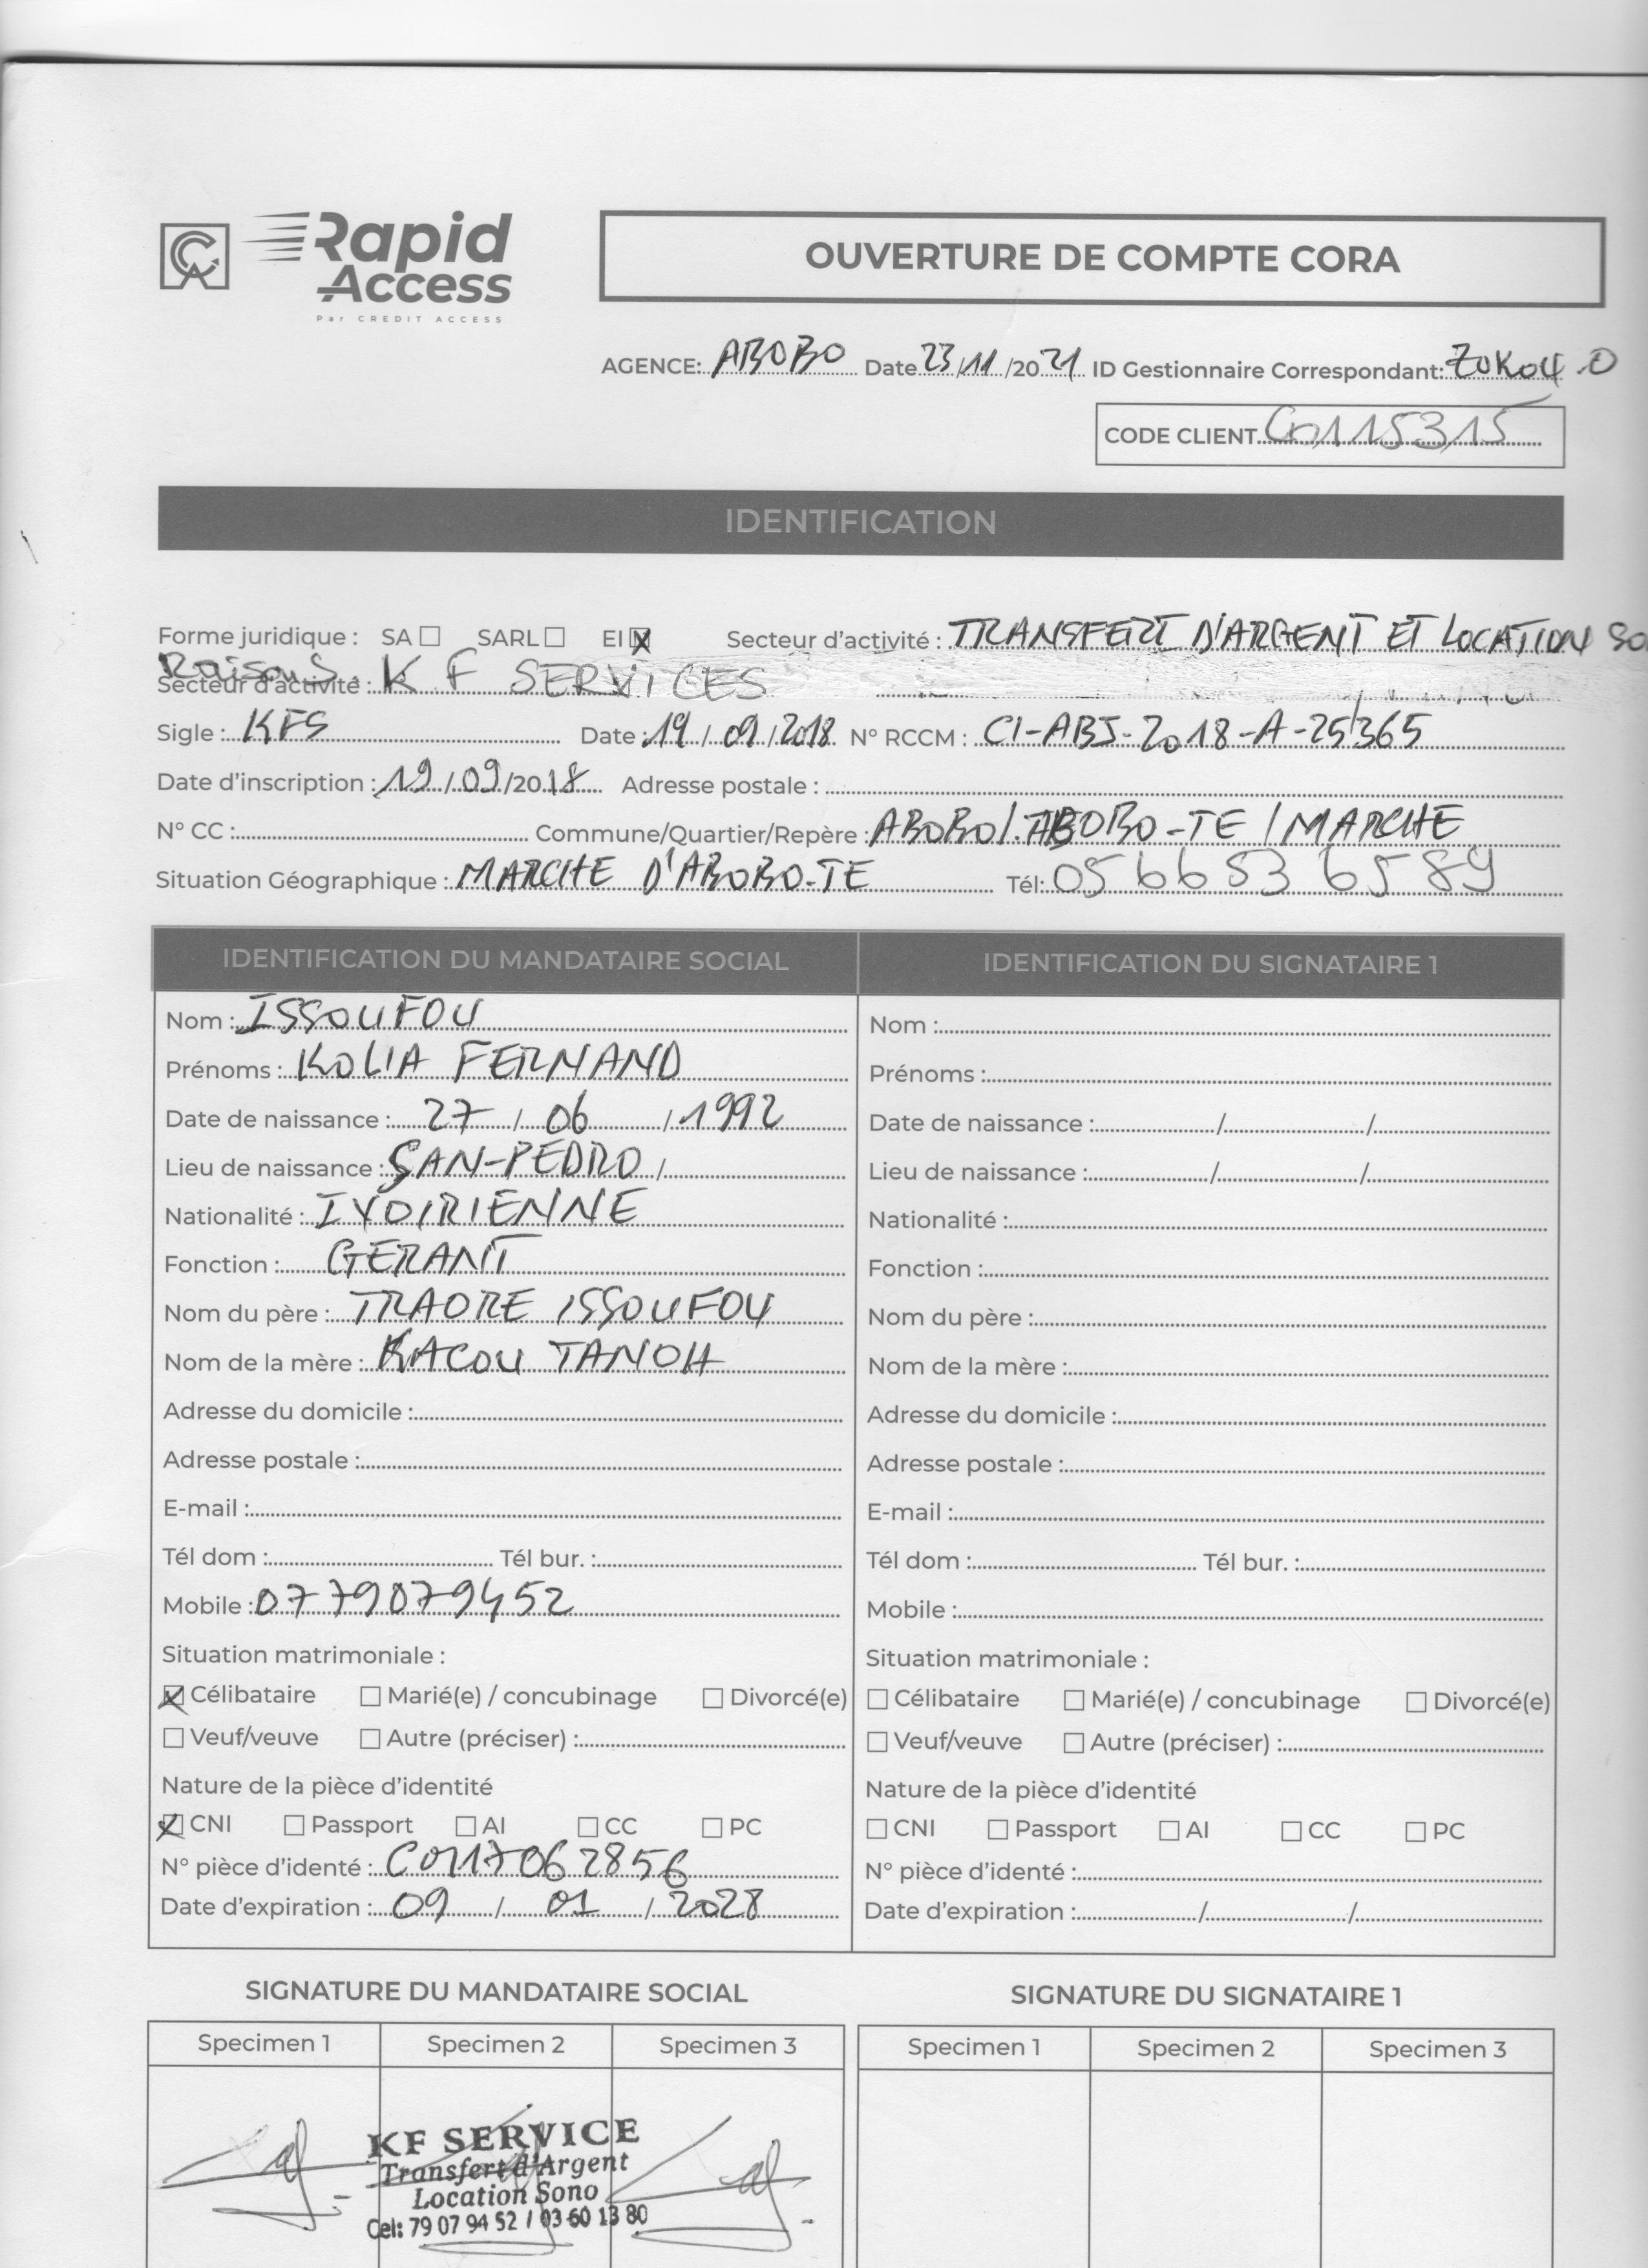 CA Rapid Access
Par CREDIT ACCESS
OUVERTURE DE COMPTE CORA
AGENCE: ABOBO Date 23/11/2021 ID Gestionnaire Correspondant: ZOKOU .O
CODE CLIENT
IDENTIFICATION
Forme juridique : SA ☐ SARL ☐ EI ☒ Secteur d'activité : TRANSFERT D'ARGENT ET LOCATION SO
Raison S.
Secteur d'activité : K F SERVICES
Sigle : KFS Date : 19/09/2018 N° RCCM : CI-ABJ-2018-A-25365
Date d'inscription : 19/09/2018 Adresse postale :
N° CC : Commune/Quartier/Repère : ABOBO/ABOBO-TE/MARCHE
Situation Géographique : MARCHE D'ABOBO-TE Tél: 0566536589
IDENTIFICATION DU MANDATAIRE SOCIAL IDENTIFICATION DU SIGNATAIRE 1
Nom : ISSOUFOU
Prénoms : KOLIA FERNAND
Date de naissance : 27 / 06 / 1992
Lieu de naissance : SAN-PEDRO /
Nationalité : IVOIRIENNE
Fonction : GERANT
Nom du père : TRAORE ISSOUFOU
Nom de la mère : KACOU TANOH
Adresse du domicile :
Adresse postale :
E-mail :
Tél dom : Tél bur. :
Mobile : 0779079452
Situation matrimoniale :
☒ Célibataire ☐ Marié(e) / concubinage ☐ Divorcé(e)
☐ Veuf/veuve ☐ Autre (préciser) :
Nature de la pièce d'identité
☒ CNI ☐ Passport ☐ AI ☐ CC ☐ PC
N° pièce d'identé : C0117062856
Date d'expiration : 09 / 01 / 2028
Nom :
Prénoms :
Date de naissance : / /
Lieu de naissance : / /
Nationalité :
Fonction :
Nom du père :
Nom de la mère :
Adresse du domicile :
Adresse postale :
E-mail :
Tél dom : Tél bur. :
Mobile :
Situation matrimoniale :
☐ Célibataire ☐ Marié(e) / concubinage ☐ Divorcé(e)
☐ Veuf/veuve ☐ Autre (préciser) :
Nature de la pièce d'identité
☐ CNI ☐ Passport ☐ AI ☐ CC ☐ PC
N° pièce d'identé :
Date d'expiration : / /
SIGNATURE DU MANDATAIRE SOCIAL SIGNATURE DU SIGNATAIRE 1
Specimen 1 Specimen 2 Specimen 3 Specimen 1 Specimen 2 Specimen 3
KF SERVICE
Transfert d'Argent
Location Sono
Cel: 79 07 94 52 / 03 60 13 80